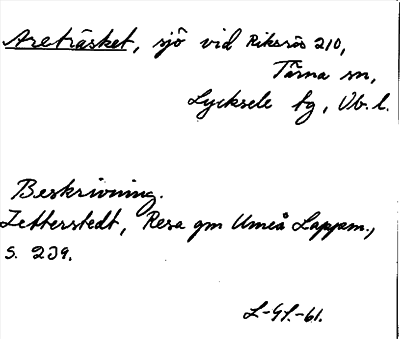 Areträsket, sjö vid Riksrös 210,
Tärna sn,
Lycksele lg, Vb. l.
Beskrivning.
Zetterstedt, Resa gm Umeå Lappm.,
s. 239.